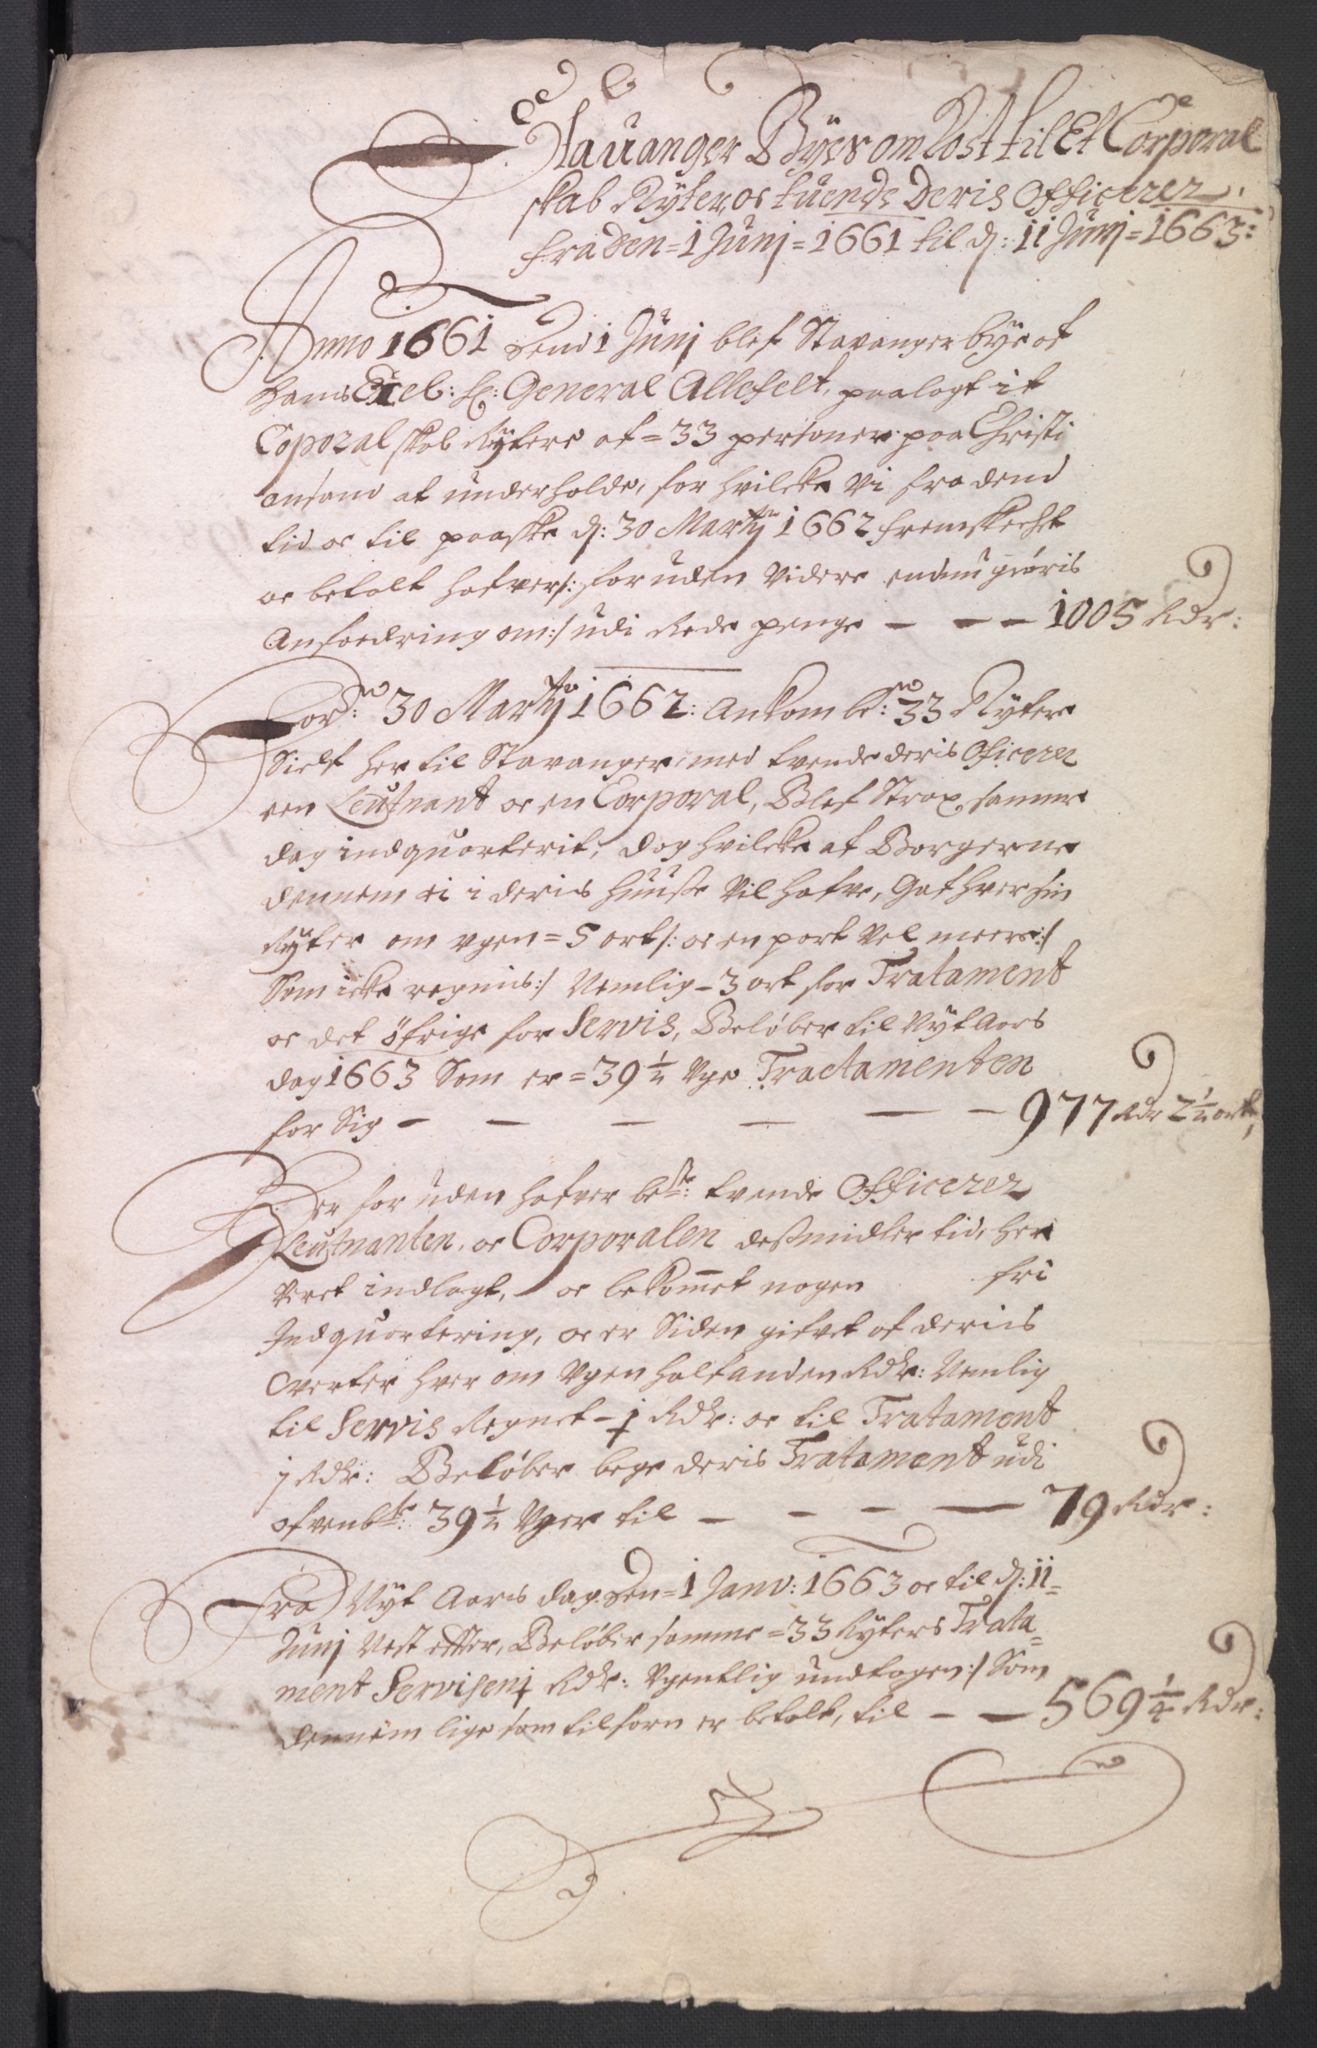 Stauanger Byes omKost til Et Corporal
skab Rytter, oc tuende Deris Officerer
fra den = 1 Junj = 1661 til d: 11 Junj = 1663:
Anno 1661 dend 1 Junj blef Stavanger bye af
hans Excel: hr: General Allefelt, paalagt it
Coporal skab Rytere af = 33 personer paa Christi
ansand at underholde, for hvilcke Vi fra dend
tid oc til paaske d: 30 Marty 1662 fremskechet
oc betalt hafver /: foruden Videre endnu giøris
Anfordring om :/ udi Rede penge — — — 1005 Rdr:
For:ne 30 Marty 1662: Ankom be:te 33 Rytere
Sielf her til Stavanger, med tvende deris Oficerer
een Leutnant oc en Corporal, Blef Strax samme
dag indquarterit, dog hvilcke af Borgerne
dennem ei i deris Huuse Vil hafve, Gaf hver sin
Ryter om ugen = 5 ort /: oc en part Vel meere :/
Som icke regnis :/ Nemlig – 3 ort for Tratament
oc det öfrige for Servis, Beløber til Nyt Aars
dag 1663 Som er = 39 ½ Uge Tractamenten
for Sig — — — — — — 977 Rdr 2 ½ ort,
Der for uden hafver be:te tvende Officerer
Leutnanten, oc Corporalen dessmidler tid, her
Veret indlagt, oc bekommet nogen fri
Indquartering, oc er Siden gifvet af deris
Verter hver om Ugen halfanden Rdr: Nemlig
til Servis Regnet – ½ Rdr: oc til Tratament
1 Rdr: Beløber bege deris Tratament udi
ofvenb:te: 39 ½ Uger til — — — — 79 Rdr:
Fra Nyt Aars dag den = 1 Janv: 1663 oc til d: 11 =
Junj Nest efter, Beløber samme = 33 Ryters Trata=
ment Servisen ½ Rdr: Ugentlig undtagen :/ Som
dennem lige som tilforn er betalt, til — — 569 ¼ Rdr: